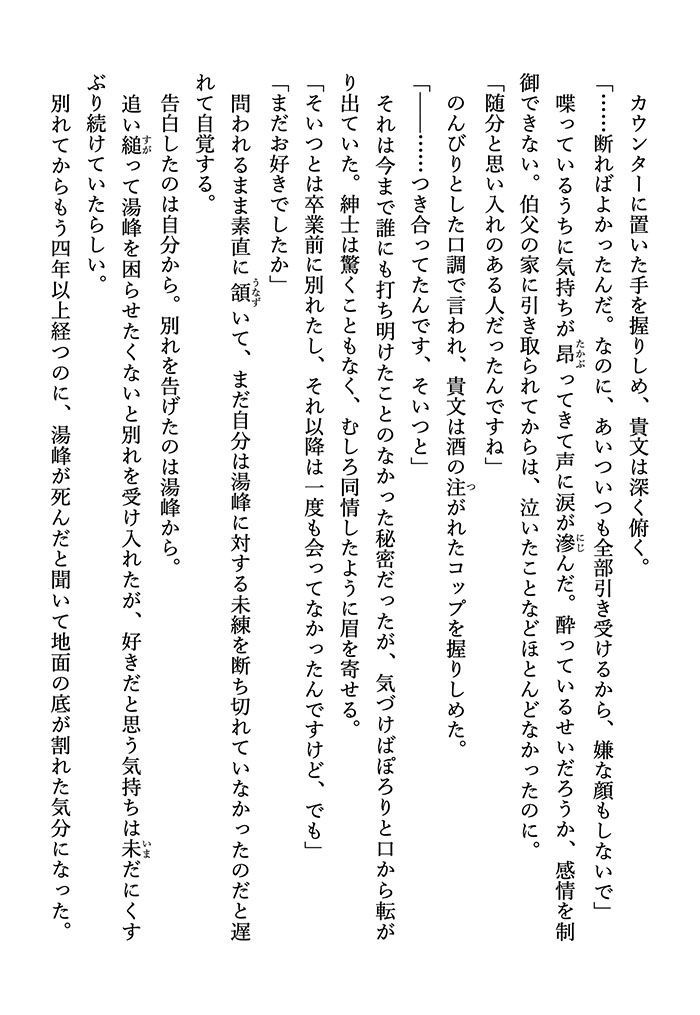 カウンターに置いた手を握りしめ、貴文は深く俯く。
「……断ればよかったんだ。なのに、あいついつも全部引き受けるから、嫌な顔もしないで」
喋っているうちに気持ちが昂ってきて声に涙が滲んだ。酔っているせいだろうか、感情を制
御できない。伯父の家に引き取られてからは、泣いたことなどほとんどなかったのに。
「随分と思い入れのある人だったんですね」
のんびりとした口調で言われ、貴文は酒の注がれたコップを握りしめた。
「――……つき合ってたんです、そいつと」
それは今まで誰にも打ち明けたことのなかった秘密だったが、気づけばぽろりと口から転が
り出ていた。紳士は驚くこともなく、むしろ同情したように眉を寄せる。
「そいつとは卒業前に別れたし、それ以降は一度も会ってなかったんですけど、でも」
「まだお好きでしたか」
問われるまま素直に頷いて、まだ自分は湯峰に対する未練を断ち切れていなかったのだと遅
れて自覚する。
告白したのは自分から。別れを告げたのは湯峰から。
追い縋って湯峰を困らせたくないと別れを受け入れたが、好きだと思う気持ちは未だにくす
ぶり続けていたらしい。
別れてからもう四年以上経つのに、湯峰が死んだと聞いて地面の底が割れた気分になった。